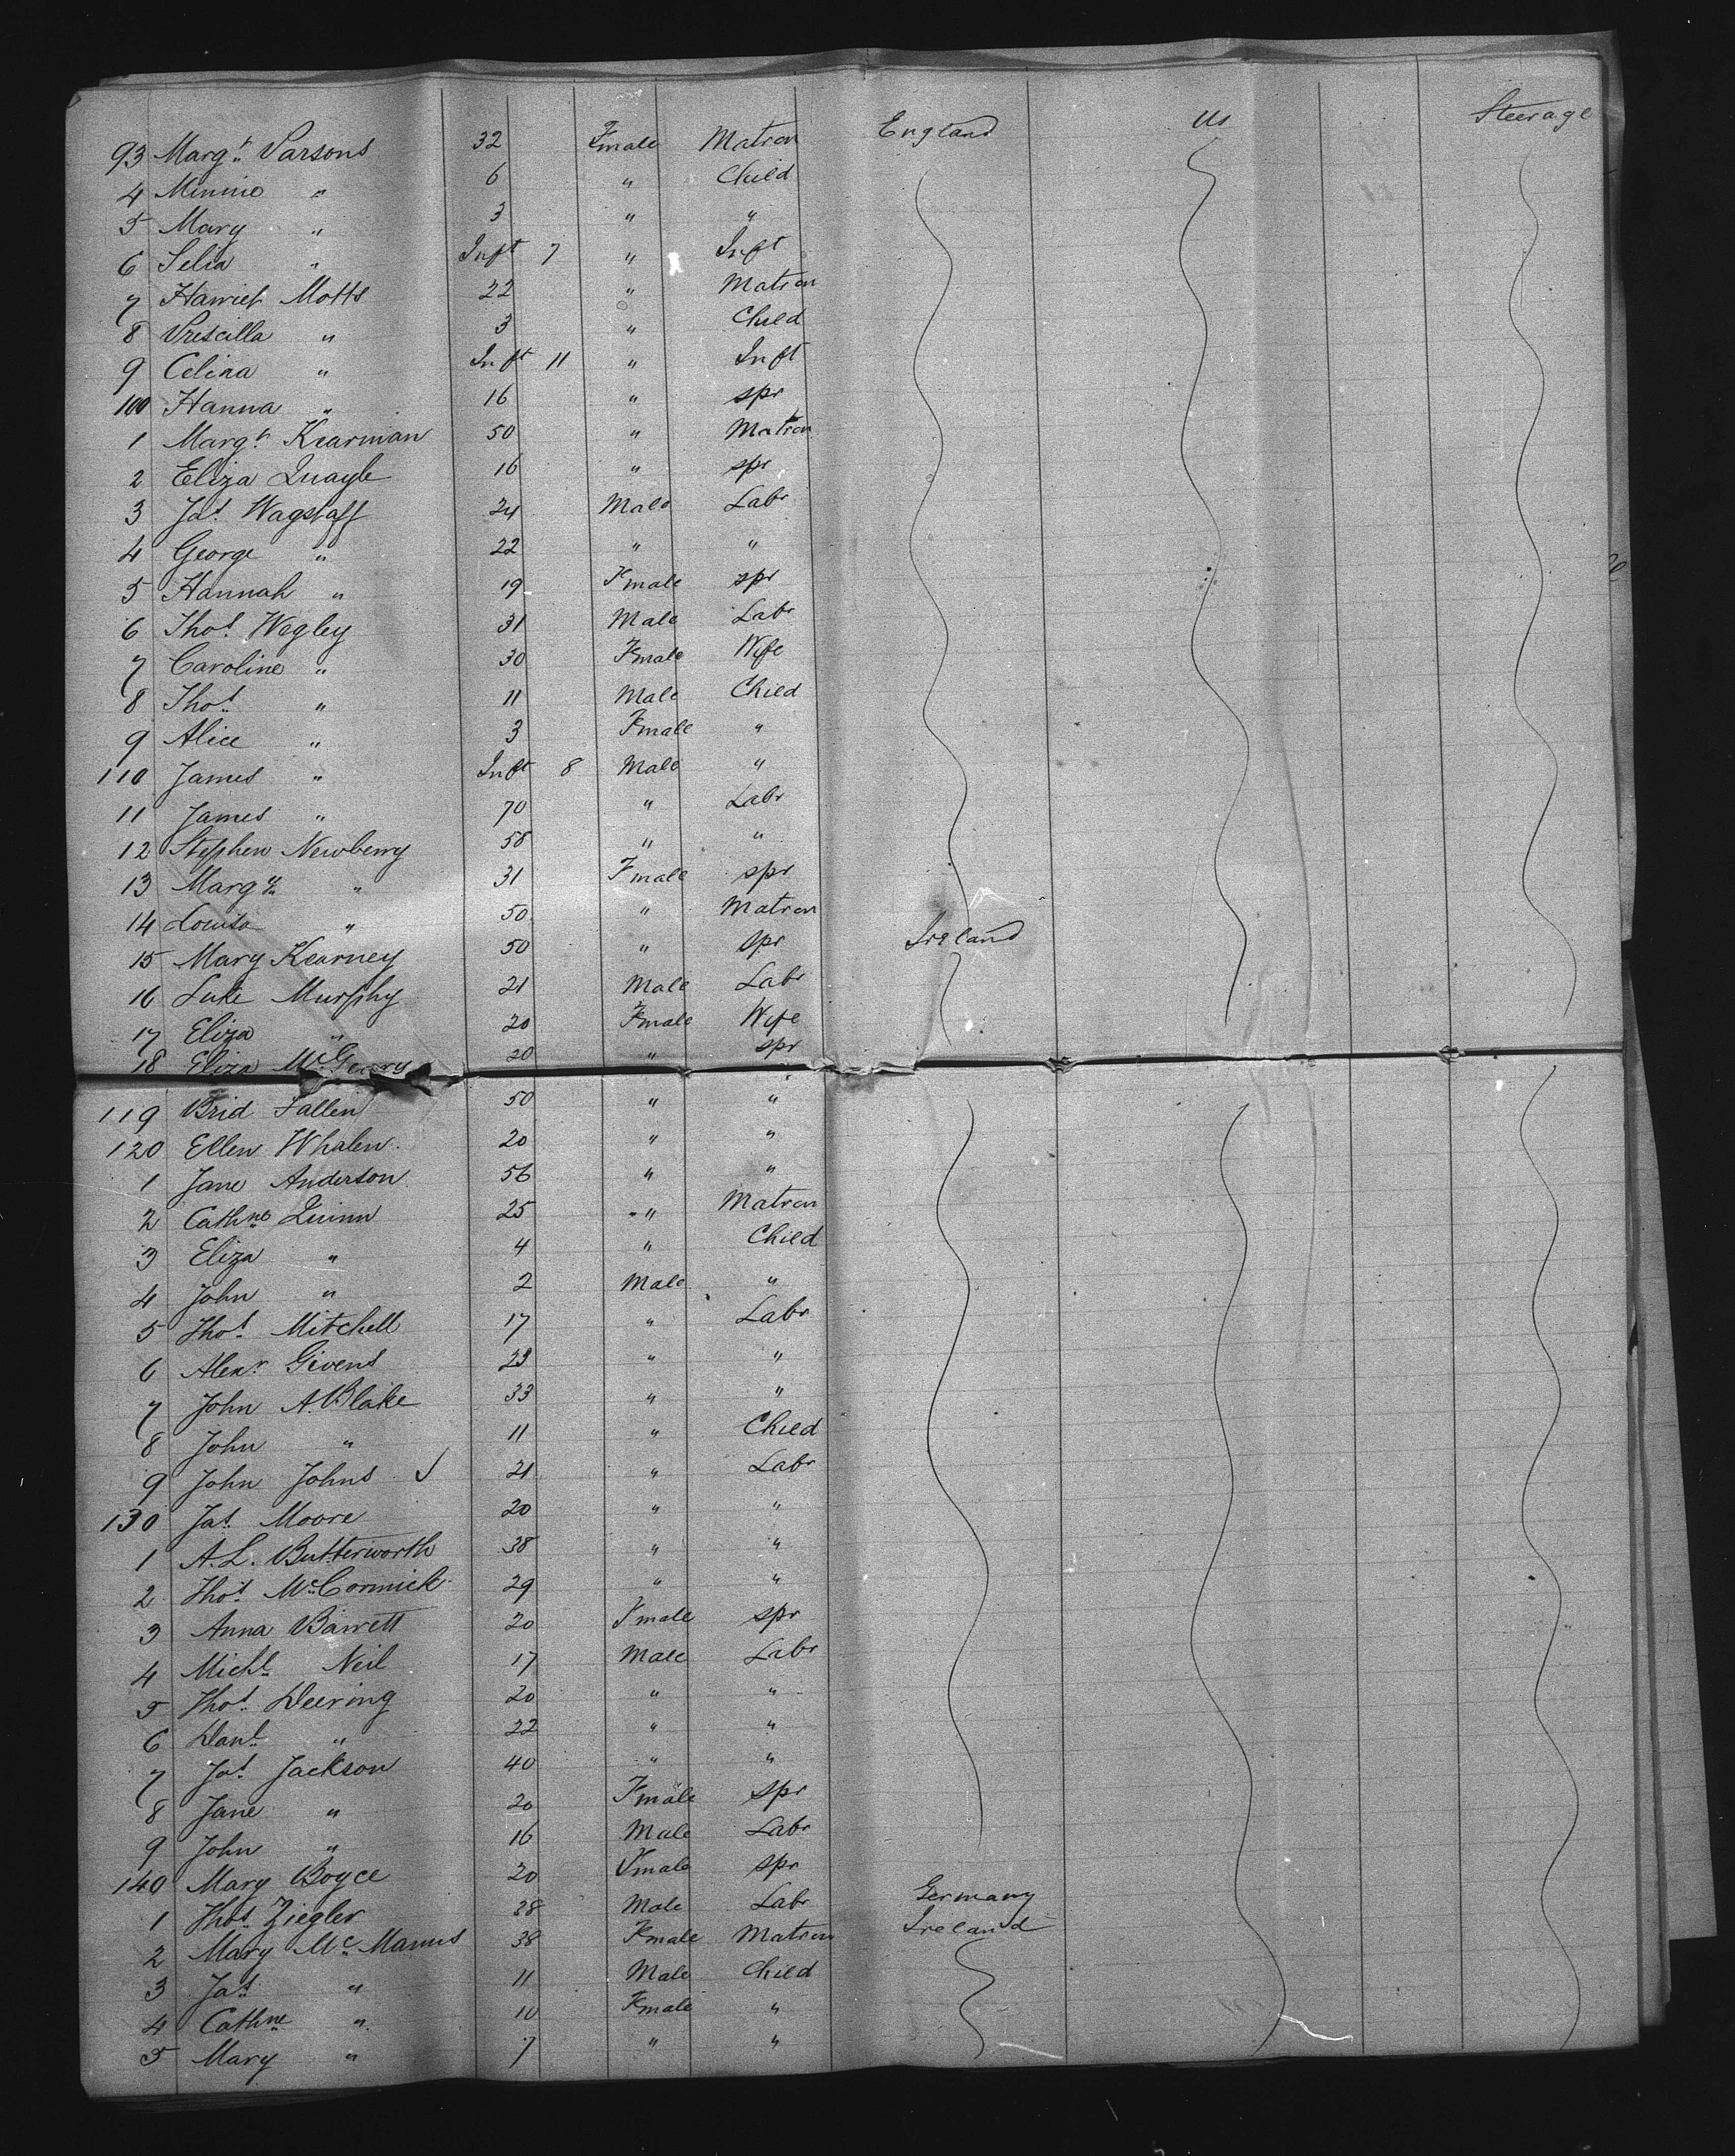 93 Margt. Parsons 32 Fmale Matron England Us Steerage
4 Minnie " 6 " Child
5 Mary " 3 " "
6 Selia " Inft 7 " Inft
7 Harriet Motts 22 " Matron
8 Priscilla " 3 " Child
9 Celina " Inft 11 " Inft
100 Hanna " 16 " spr
1 Margt. Kearnan 50 " Matron
2 Eliza Quayle 16 " spr
3 Jas. Wagstaff 24 Male Labr
4 George " 22 " "
5 Hannah " 19 Fmale spr
6 Thos. Wegley 31 Male Labr
7 Caroline " 30 Fmale Wife
8 Thos. " 11 Male Child
9 Alice " 3 Fmale "
110 James " Inft 8 Male "
11 James " 70 " Labr
12 Stephen Newberry 58 " "
13 Margt. " 31 Fmale spr
14 Louisa " 50 " Matron
15 Mary Kearney 50 " spr Ireland
16 Luke Murphy 21 Male Labr
17 Eliza " 20 Fmale Wife
18 Eliza McGeary 20 " spr
119 Brid Fallen 50 " "
120 Ellen Whalen 20 " "
1 Jane Anderson 56 " "
2 Cathne Quinn 25 " Matron
3 Eliza " 4 " Child
4 John " 2 Male "
5 Thos. Mitchell 17 " Labr
6 Alexr Givens 23 " "
7 John A. Blake 33 " "
8 John " 11 " Child
9 John Johns 21 " Labr
130 Jas. Moore 20 " "
1 A. L. Butterworth 38 " "
2 Thos. McCormick 29 " "
3 Anna Barrett 20 Fmale spr
4 Michl. Neil 17 Male Labr
5 Thos. Deering 20 " "
6 Danl. " 22 " "
7 Jas. Jackson 40 " "
8 Jane " 20 Fmale spr
9 John " 16 Male Labr
140 Mary Boyce 20 Fmale spr
1 Thos. Ziegler 38 Male Labr Germany
2 Mary McManus 38 Fmale Matron Ireland
3 Jas. " 11 Male Child
4 Cathne " 10 Fmale "
5 Mary " 7 " "